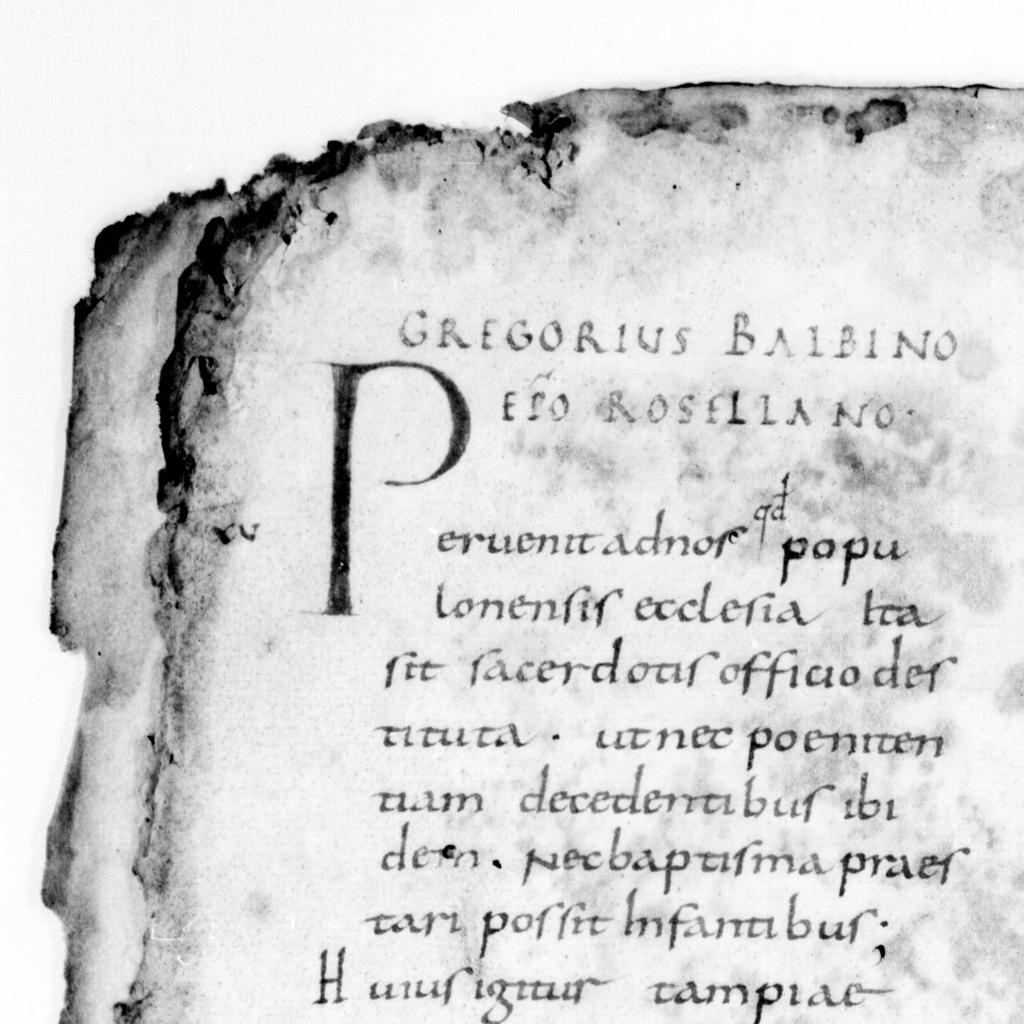 GREGORIUS BALBINO
EPO ROSELLANO·
qd
xv Peruenit ad nos popu
lonensis ecclesia Ita
sit sacerdotis officio des
tituta · ut nec poeniten
tiam decedentibus ibi
dem. Nec baptisma praes
tari possit Infantibus;
Huius igitur tam piae